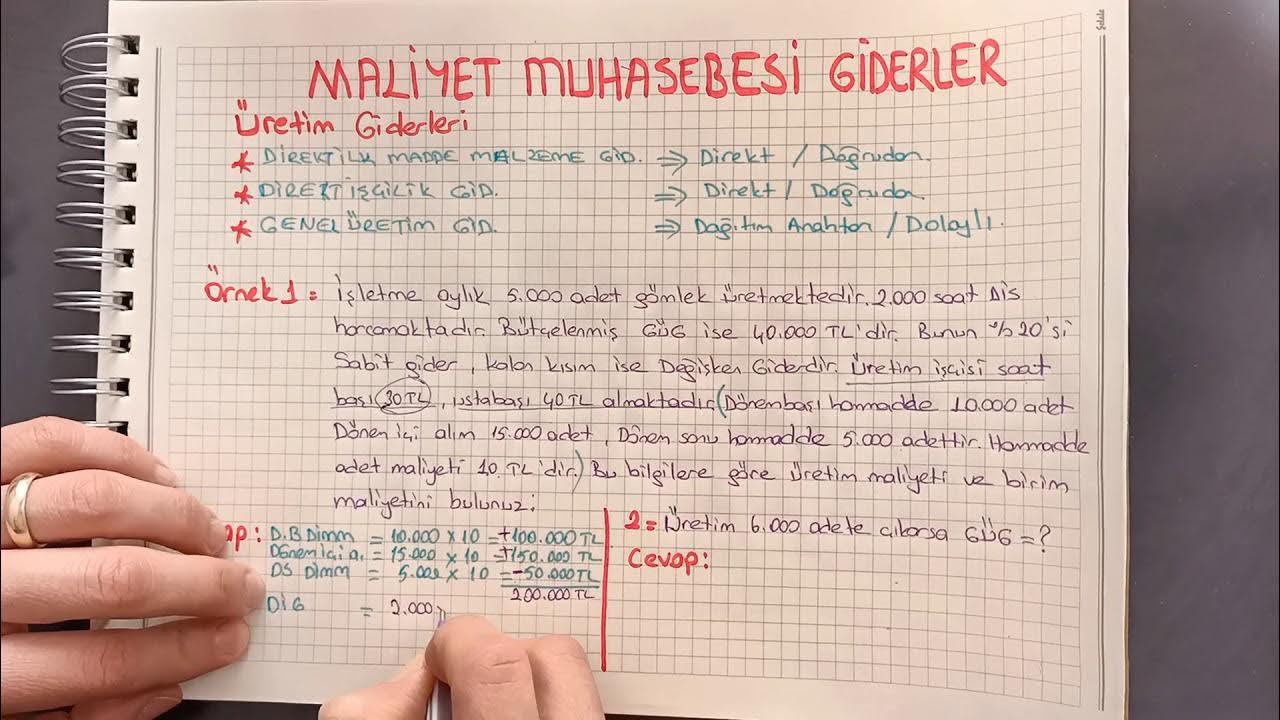 MALİYET MUHASEBESİ GİDERLER
Üretim Giderleri
* DİREKT İLK MADDE MALZEME GİD. ⇒ Direkt / Doğrudan.
* DİREKT İŞÇİLİK GİD. ⇒ Direkt / Doğrudan.
* GENEL ÜRETİM GİD. ⇒ Dağıtım Anahtarı / Dolaylı.
Örnek 1 = İşletme aylık 5.000 adet gömlek üretmektedir. 2.000 saat DİS
harcamaktadır. Bütçelenmiş GÜG ise 40.000 TL'dir. Bunun %20'si
Sabit gider, kalan kısım ise Değişken Giderdir. Üretim işçisi saat
başı 30 TL, ustabaşı 40 TL almaktadır. (Dönembaşı hammadde 10.000 adet
Dönem içi alım 15.000 adet, Dönem sonu hammadde 5.000 adettir. Hammadde
adet maliyeti 10 TL'dir.) Bu bilgilere göre üretim maliyeti ve birim
maliyetini bulunuz:
ap: D.B Dimm = 10.000 x 10 = +100.000 TL
Dönem İçi a. = 15.000 x 10 = +150.000 TL
DS Dimm = 5.000 x 10 = -50.000 TL
200.000 TL
DİG = 2.000
2 = Üretim 6.000 adete çıkarsa GÜG = ?
Cevap: